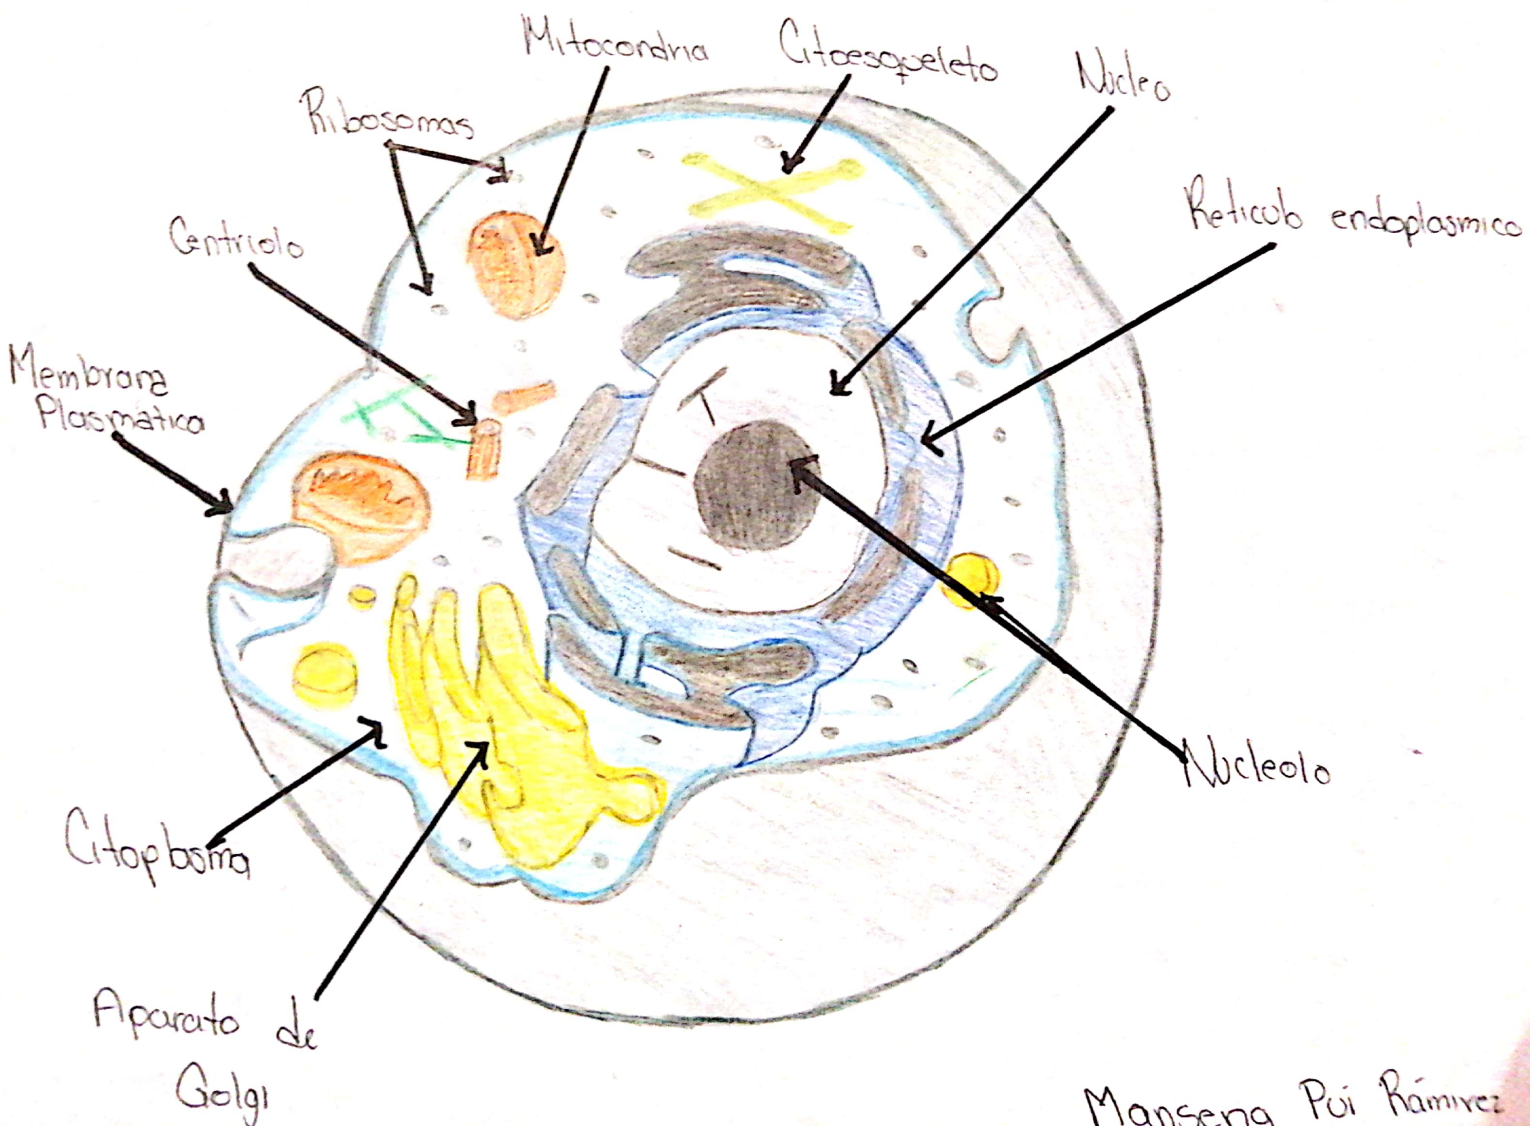 Mitocondria
Citoesqueleto
Núcleo
Ribosomas
Retículo endoplasmico
Centriolo
Membrana
Plasmática
Nucleolo
Citoplasma
Aparato de
Golgi
Pui Rámirez